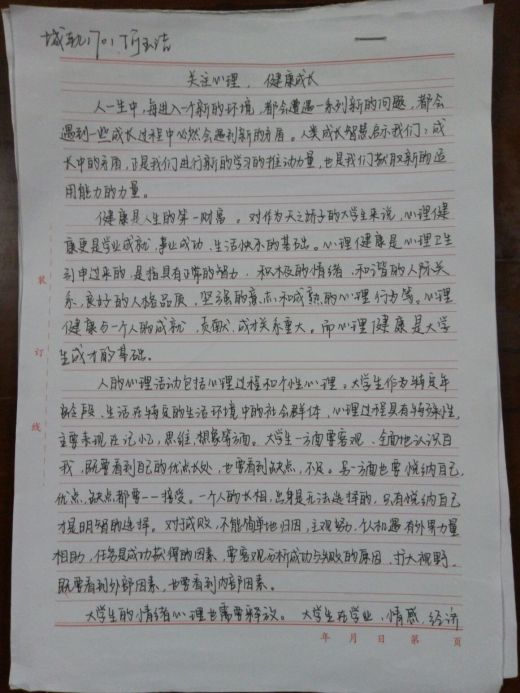 城轨1701 丁玉洁
关注心理，健康成长
人一生中，每进入一个新的环境，都会遭遇一系列新的问题，都会
遇到一些成长过程中必然会遇到新的矛盾。人类成长智慧启示我们：成
长中的矛盾，正是我们进行新的学习的推动力量，也是我们获取新的适
用能力的力量。
健康是人生的第一财富。对作为天之骄子的大学生来说，心理健
康更是学业成就、事业成功、生活快乐的基础。心理健康是心理卫生
引申过来的，是指具有正常的智力、积极的情绪、和谐的人际关
系、良好的人格品质、坚强的意志和成熟的心理行为等。心理
健康与一个人的成就、贡献、成才关系重大。而心理健康是大学
生成才的基础。
人的心理活动包括心理过程和个性心理。大学生作为特定年
龄段、生活在特定的生活环境中的社会群体，心理过程具有特殊性，
主要表现在记忆，思维，想象等方面。大学生一方面要客观、全面地认识自
我，既要看到自己的优点长处，也要看到缺点，不足。另一方面也要悦纳自己，
优点，缺点都要一一接受。一个人的长相，出身是无法选择的，只有悦纳自己
才是明智的选择。对于成败，不能简单地归因，主观努力，个人机遇有外界力量
相助，任务是成功获得的因素，要客观分析成功与失败的原因，扩大视野，
既要看到外部因素，也要看到内部因素。
大学生的情绪心理也需要释放。大学生在学业，情感，经济
装
订
线
年 月 日 第 页